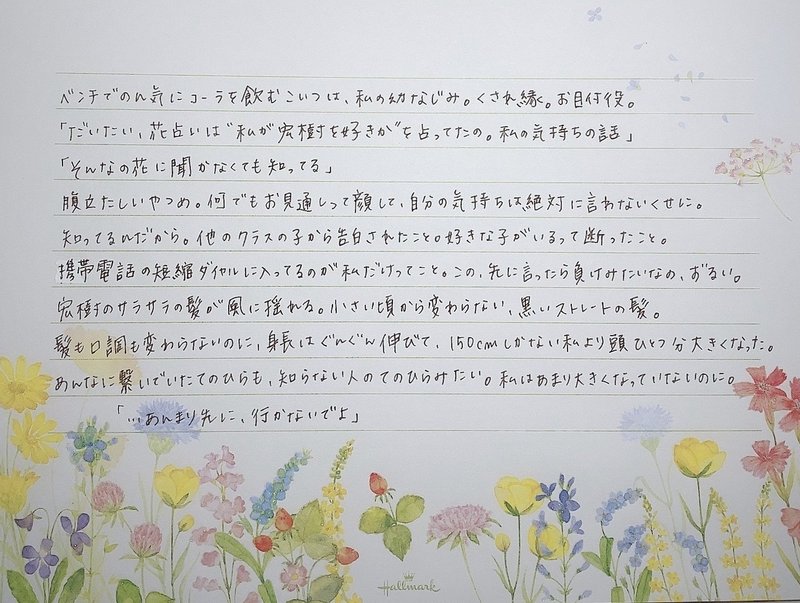 ベンチでのん気にコーラを飲むこいつは、私の幼なじみ。くされ縁。お目付役。
「だいたい、花占いは"私が宏樹を好きか"を占ってたの。私の気持ちの話」
「そんなの花に聞かなくても知ってる」
腹立たしいやつめ。何でもお見通しって顔して、自分の気持ちは絶対に言わないくせに。
知ってるんだから。他のクラスの子から告白されたこと。好きな子がいるって断ったこと。
携帯電話の短縮ダイヤルに入ってるのが私だけってこと。この、先に言ったら負けみたいなの、ずるい。
宏樹のサラサラの髪が風に揺れる。小さい頃から変わらない、黒いストレートの髪。
髪も口調も変わらないのに、身長はぐんぐん伸びて、150cmしかない私より頭ひとつ分大きくなった。
あんなに繋いでいたてのひらも、知らない人のてのひらみたい。私はあまり大きくなっていないのに。
「…あんまり先に、行かないでよ」
Hallmark